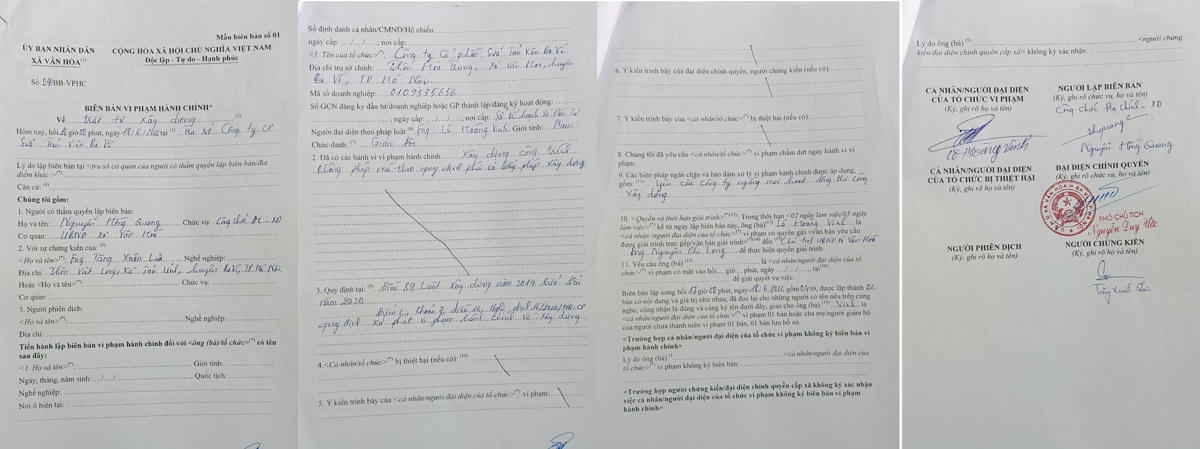 Mẫu biên bản số 01
ỦY BAN NHÂN DÂN
XÃ VÂN HÒA(1)
CỘNG HÒA XÃ HỘI CHỦ NGHĨA VIỆT NAM
Độc lập - Tự do - Hạnh phúc
Số: /BB-VPHC
BIÊN BẢN VI PHẠM HÀNH CHÍNH*
Về trật tự xây dựng (2)
Hôm nay, hồi giờ phút, ngày tại (3) Công ty CP
Sữa Ba Vì
Lý do lập biên bản tại <trụ sở cơ quan của người có thẩm quyền lập biên bản/địa
điểm khác>(*)
Căn cứ: (4)
Chúng tôi gồm:
1. Người có thẩm quyền lập biên bản:
Họ và tên: Nguyễn Hồng Quang Chức vụ: Công chức ĐC - XD
Cơ quan: UBND xã Vân Hòa
2. Với sự chứng kiến của: (5)
<Họ và tên>(*): Ông Tăng Xuân Nghề nghiệp:
Địa chỉ: Thôn Việt Long, xã Tản Lĩnh, huyện Ba Vì, TP Hà Nội
Hoặc <Họ và tên>(*) Chức vụ:
Cơ quan:
3. Người phiên dịch:
<Họ và tên>(*) Nghề nghiệp:
Địa chỉ:
Tiến hành lập biên bản vi phạm hành chính đối với <ông (bà)/tổ chức>(*) có tên
sau đây:
<1. Họ và tên>(*): Giới tính:
Ngày, tháng, năm sinh: .../.../ Quốc tịch:
Nghề nghiệp:
Nơi ở hiện tại:
Số định danh cá nhân/CMND/Hộ chiếu:
ngày cấp: .../.../ ; nơi cấp:
<1. Tên của tổ chức>(*): Công ty Cổ phần Sữa Ba Vì
Địa chỉ trụ sở chính: Thôn Hòa Trung, xã Vân Hòa, huyện
Ba Vì, TP Hà Nội
Mã số doanh nghiệp: 0109585656
Số GCN đăng ký đầu tư/doanh nghiệp hoặc GP thành lập/đăng ký hoạt động:
; ngày cấp: .../.../ ; nơi cấp: Sở Kế hoạch và Đầu tư
Người đại diện theo pháp luật:(6) Ông Lê Hoàng Vinh Giới tính: Nam
Chức danh: (7) Giám đốc
2. Đã có các hành vi vi phạm hành chính Xây dựng công trình
không phép mà theo quy định phải có giấy phép xây dựng
3. Quy định tại: (9) Luật Xây dựng năm 2014 sửa đổi
năm 2020
quy định xử phạt vi phạm hành chính về xây dựng
4. <Cá nhân/tổ chức>(*) bị thiệt hại (nếu có): (10)
5. Ý kiến trình bày của <cá nhân/người đại diện của tổ chức>(*) vi phạm:
6. Ý kiến trình bày của đại diện chính quyền, người chứng kiến (nếu có):
7. Ý kiến trình bày của <cá nhân/người đại diện của tổ chức>(*) bị thiệt hại (nếu có):
8. Chúng tôi đã yêu cầu <cá nhân/tổ chức>(*) vi phạm chấm dứt ngay hành vi vi
phạm.
9. Các biện pháp ngăn chặn và bảo đảm xử lý vi phạm hành chính được áp dụng,
gồm: (11) Yêu cầu công ty ngừng mọi hoạt động thi công
xây dựng
10. <Quyền và thời hạn giải trình>(*)(12). Trong thời hạn <02 ngày làm việc/05 ngày
làm việc>(*) kể từ ngày lập biên bản này, ông (bà)(13) Lê Hoàng Vinh là
<cá nhân/người đại diện của tổ chức>(*) vi phạm có quyền gửi <văn bản yêu cầu
được giải trình trực tiếp/văn bản giải trình>(*)(14) đến (15) Chủ tịch UBND xã Vân Hòa
Ông Nguyễn Phi Long để thực hiện quyền giải trình.
11. Yêu cầu ông (bà) (13) là <cá nhân/người đại diện của tổ
chức>(*) vi phạm có mặt vào hồi... giờ... phút, ngày .../.../...., tại(16)
để giải quyết vụ việc.
Biên bản lập xong hồi giờ phút, ngày , gồm tờ, được lập thành 02
bản có nội dung và giá trị như nhau; đã đọc lại cho những người có tên nêu trên cùng
nghe, công nhận là đúng và cùng ký tên dưới đây; giao cho ông (bà) (13) Vinh là
<cá nhân/người đại diện của tổ chức>(*) vi phạm 01 bản hoặc cha mẹ/người giám hộ
của người chưa thành niên vi phạm 01 bản, 01 bản lưu hồ sơ.
<Trường hợp cá nhân/người đại diện của tổ chức vi phạm không ký biên bản vi
phạm hành chính>
Lý do ông (bà) ( <cá nhân/người đại diện của
tổ chức>(*) vi phạm không ký biên bản:
<Trường hợp người chứng kiến/đại diện chính quyền cấp xã không ký xác nhận
việc cá nhân/người đại diện của tổ chức vi phạm không ký biên bản vi phạm
hành chính>
Lý do ông (bà) (5) <người chứng
kiến/đại diện chính quyền cấp xã> không ký xác nhận:
CÁ NHÂN/NGƯỜI ĐẠI DIỆN
CỦA TỔ CHỨC VI PHẠM
(Ký, ghi rõ chức vụ, họ và tên)
Lê Hoàng Vinh
NGƯỜI LẬP BIÊN BẢN
(Ký, ghi rõ chức vụ, họ và tên)
Công chức Địa chính - XD
Nguyễn Hồng Quang
CÁ NHÂN/NGƯỜI ĐẠI DIỆN
CỦA TỔ CHỨC BỊ THIỆT HẠI
(Ký, ghi rõ họ và tên)
ĐẠI DIỆN CHÍNH QUYỀN
(Ký, ghi rõ chức vụ, họ và tên)
PHÓ CHỦ TỊCH
Nguyễn Duy
NGƯỜI PHIÊN DỊCH
(Ký, ghi rõ họ và tên)
NGƯỜI CHỨNG KIẾN
(Ký, ghi rõ họ và tên)
Tăng Xuân